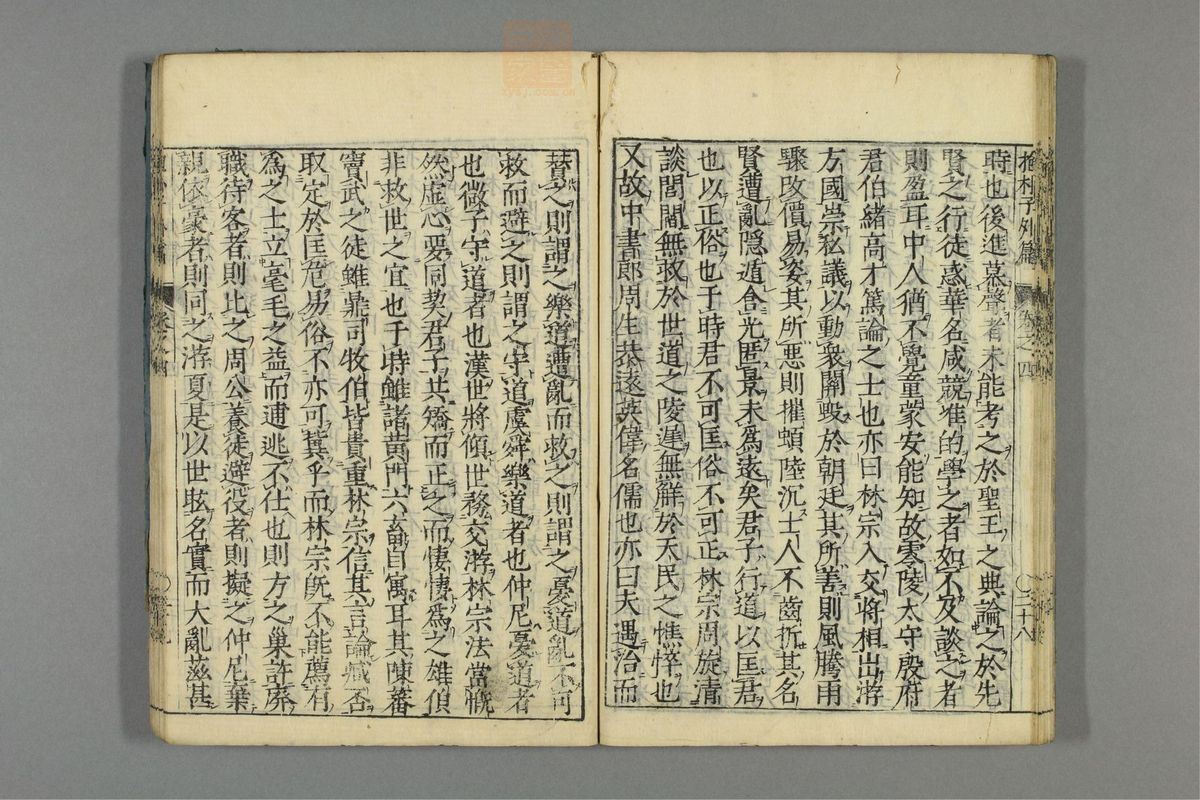 抱朴子外篇 卷之四 三十八
時也後進慕聲者未能考之於聖王之典論之於先
賢之行徒惑華名咸競准的學之者如不及談之者
則盈耳中人猶不覺童蒙安能知故零陵太守殷府
君伯緒高才篤論之士也亦曰林宗入交將相出游
方國崇私議以動衆關毀於朝廷其所善則風騰雨
驟改價易姿其所惡則摧頓陸沉士人不齒折其名
賢遭亂隱遁含光匿景未爲遠矣君子行道以匡君
也以正俗也于時君不可匡俗不可正林宗周旋清
談閭閻無救於世道之陵遲無觧於天民之憔悴也
又故中書郎周生恭遠英偉名儒也亦曰夫遇治而
賛之則謂之樂道遭亂而救之則謂之憂道亂不可
救而避之則謂之守道虞舜樂道者也仲尼憂道者
也微子守道者也漢世將傾世務交游林宗法當慨
然虛心要同契君子共矯而正之而悽悽爲之雄傎
非救世之宜也于時雖諸黃門六畜自寓耳其陳蕃
竇武之徒雖鼎司牧伯皆貴重林宗信其言論臧否
取定於匡危易俗不亦可冀乎而林宗旣不能薦有
爲之士立毫毛之益而逋逃不仕也則方之巢許廢
職待客者則比之周公養徒避役者則擬之仲尼棄
親依豪者則同之游夏是以世眩名實而大亂茲甚